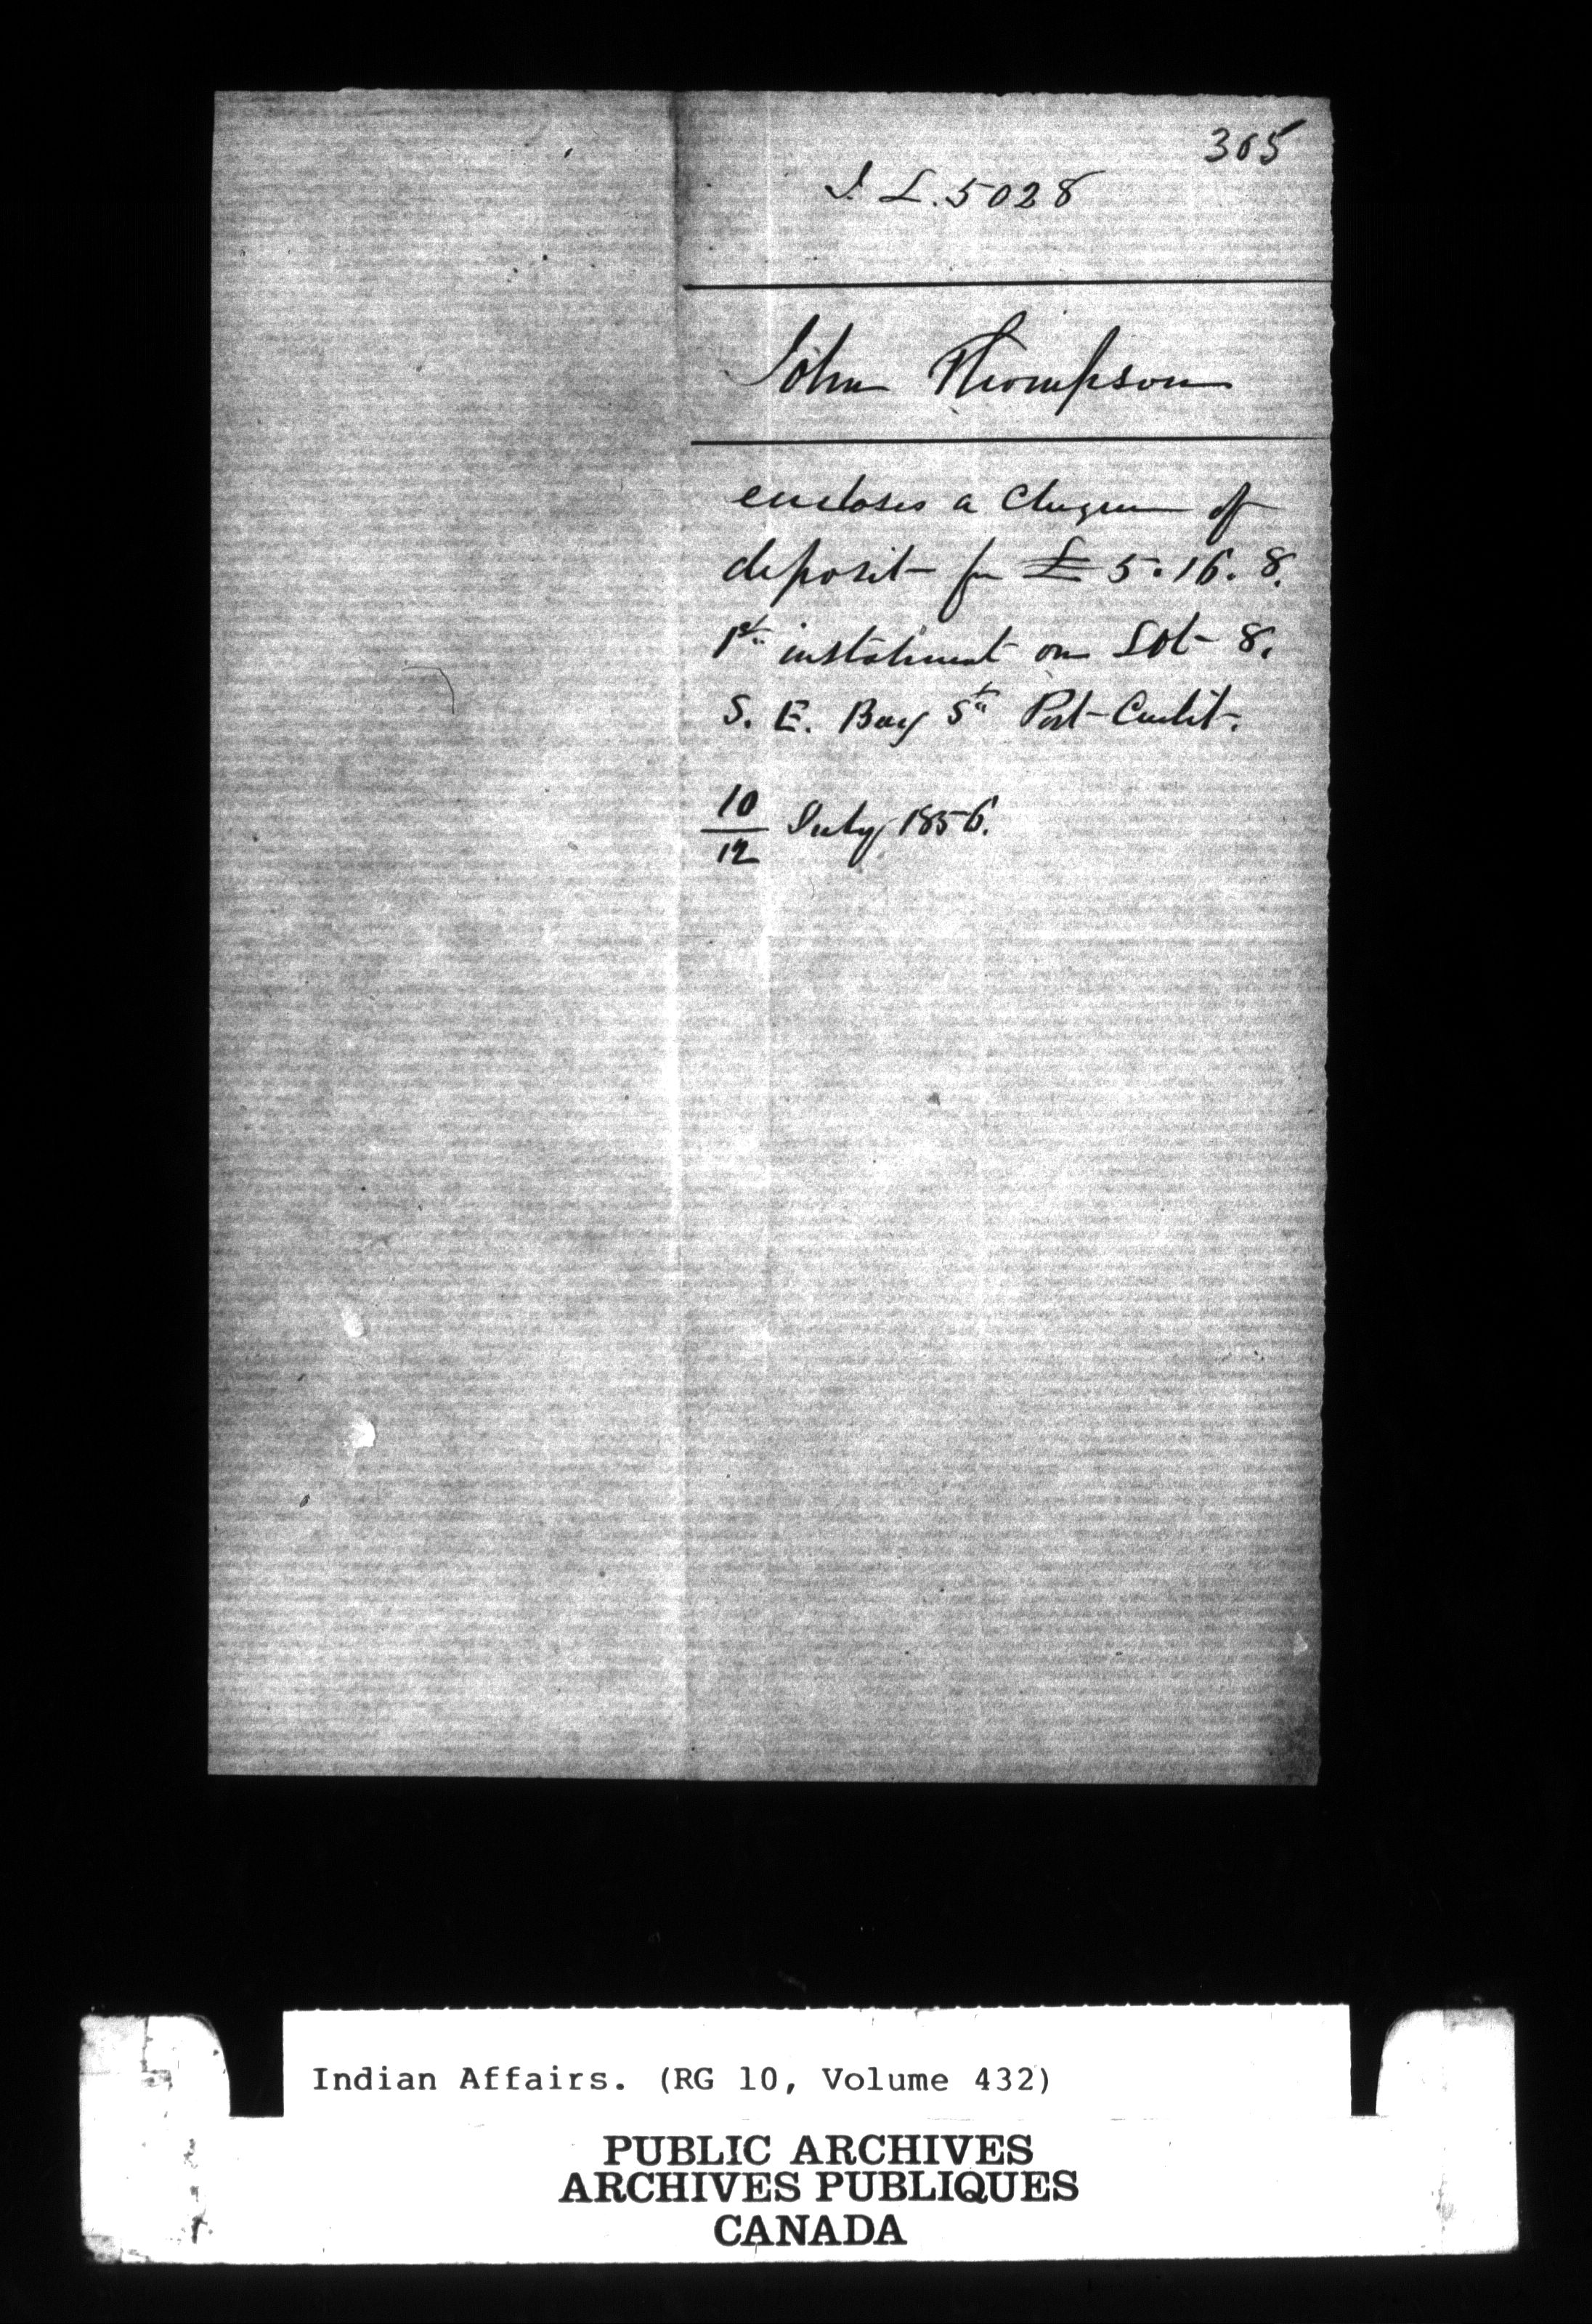 305
I. L. 5028
John Thompson
encloses a Cheque of
deposit for £5.16.8.
1st instalment on Lot 8.
S. E. Bay St Port Credit.
10/12 July 1856.
Indian Affairs. (RG 10, Volume 432)
PUBLIC ARCHIVES
ARCHIVES PUBLIQUES
CANADA